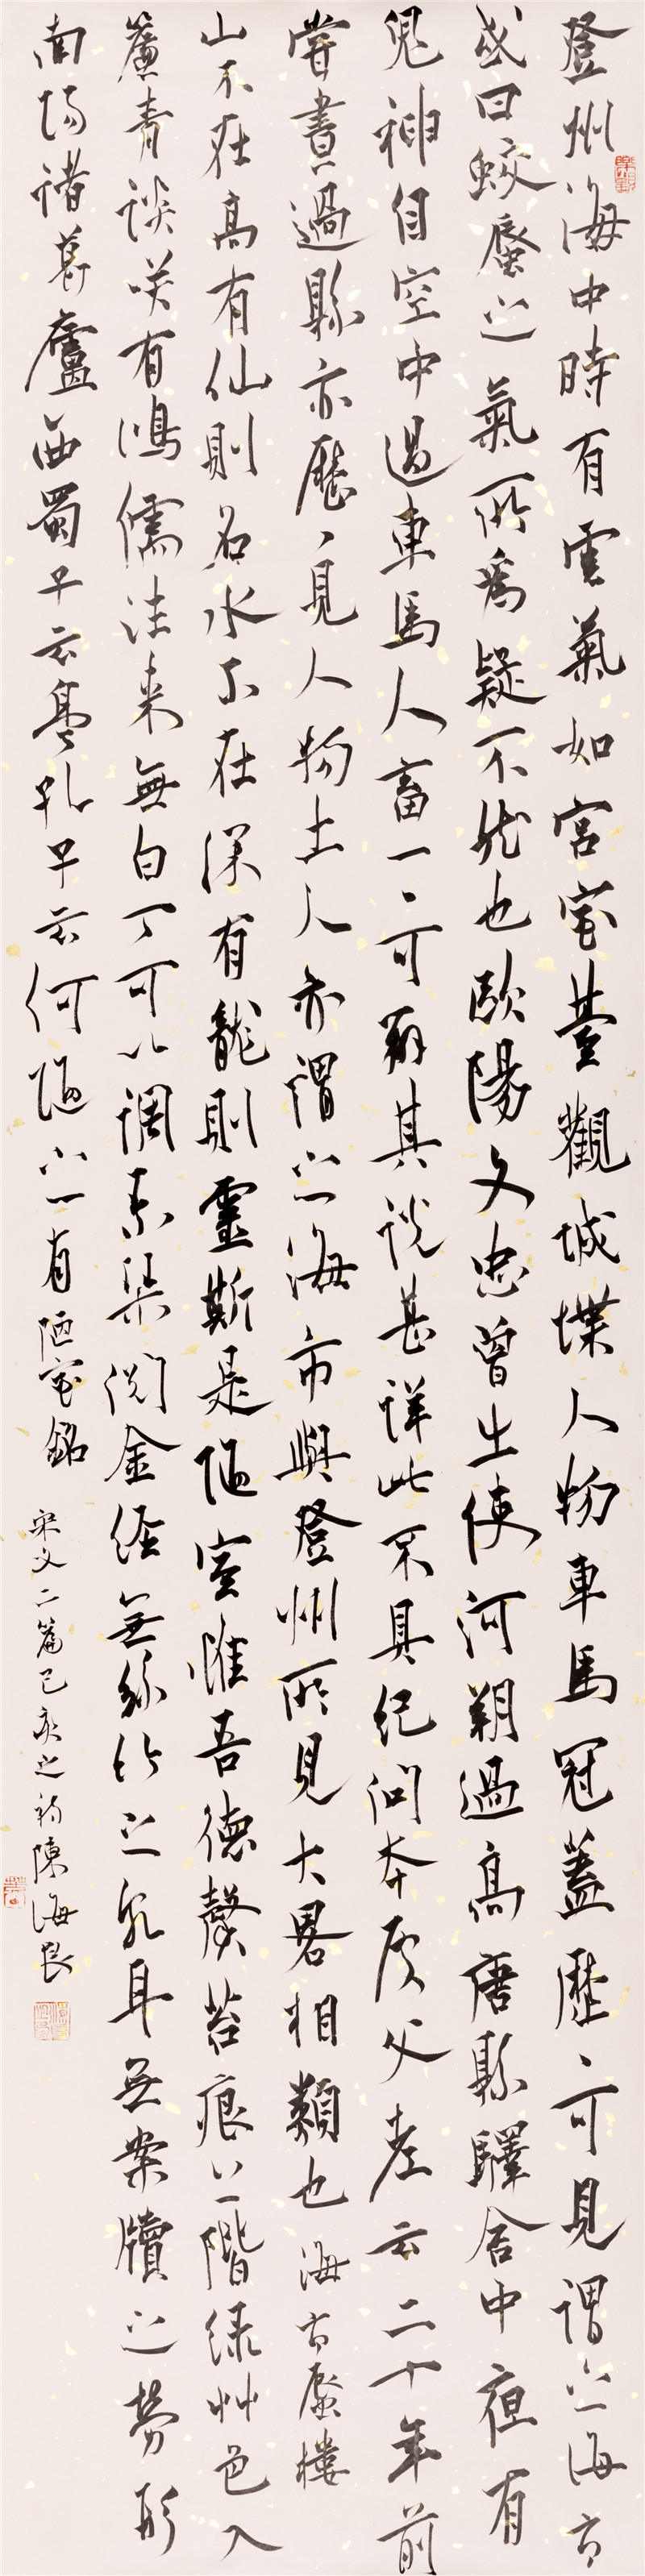 登州海中時有雲氣如宮室臺觀城堞人物車馬冠蓋歷歷可見謂之海市
或曰蛟蜃之氣所為疑不然也歐陽文忠曾出使河朔過高唐縣驛舍中夜有
鬼神自空中過車馬人畜一一可辨其說甚詳此不具紀問本處父老云二十年前
嘗晝過縣亦歷歷見人物土人亦謂之海市與登州所見大畧相類也 海市蜃樓
山不在高有仙則名水不在深有龍則靈斯是陋室惟吾德馨苔痕上階綠艸色入
簾青談笑有鴻儒往來無白丁可以調素琴閱金經無絲竹之亂耳無案牘之勞形
南陽諸葛廬西蜀子云亭孔子云何陋之有 陋室銘 宋文二篇己亥之初陳海良